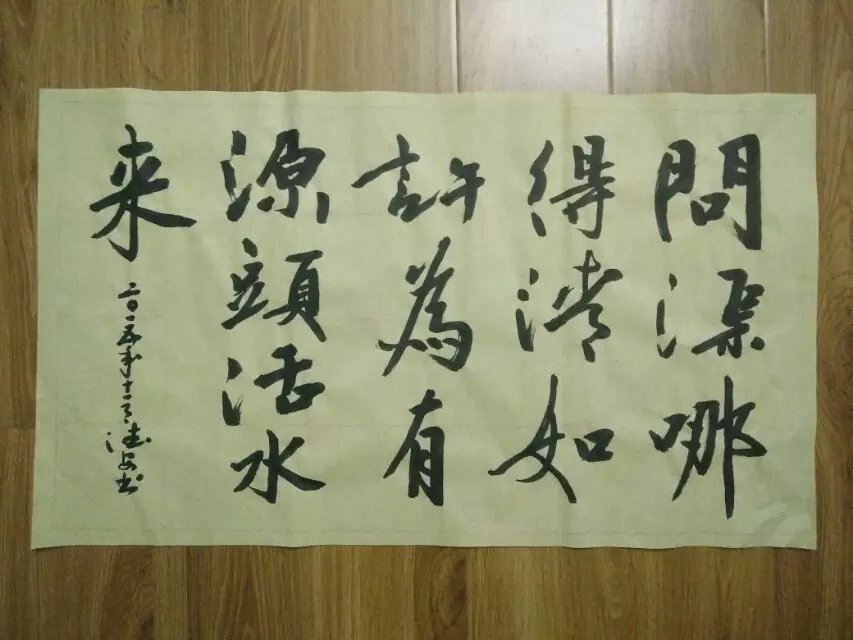 問渠哪
得清如
許為有
源頭活水
来
二〇一五年十二月德安书